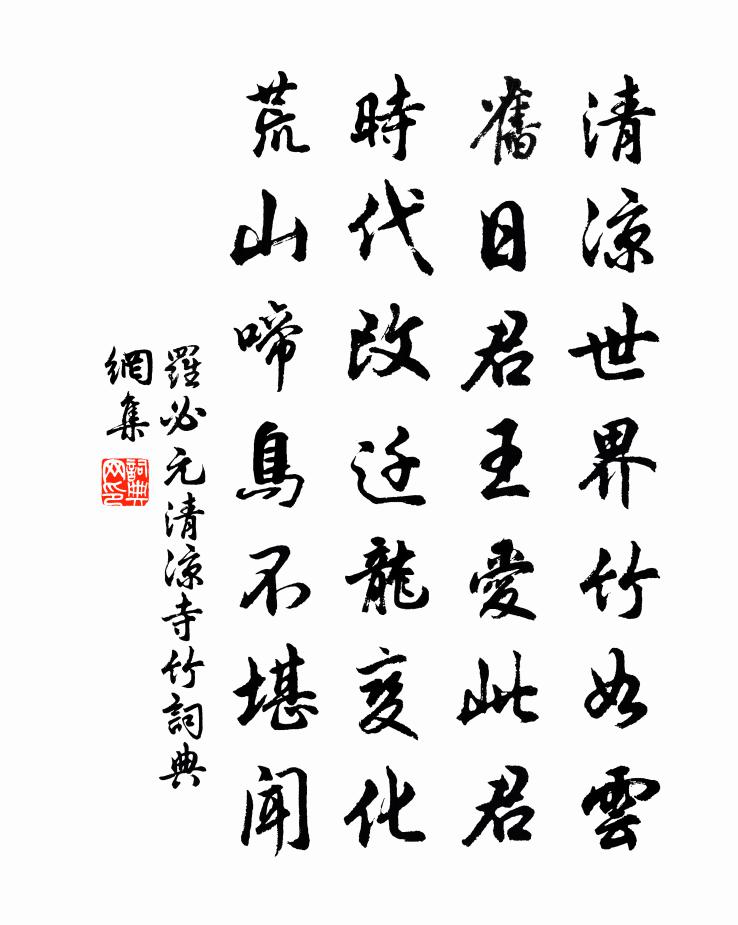 清涼世界竹如雲
舊日君王愛此君
時代改迁龍变化
荒山啼鳥不堪聞
羅必元清涼寺竹詞典
網集
詞典网印